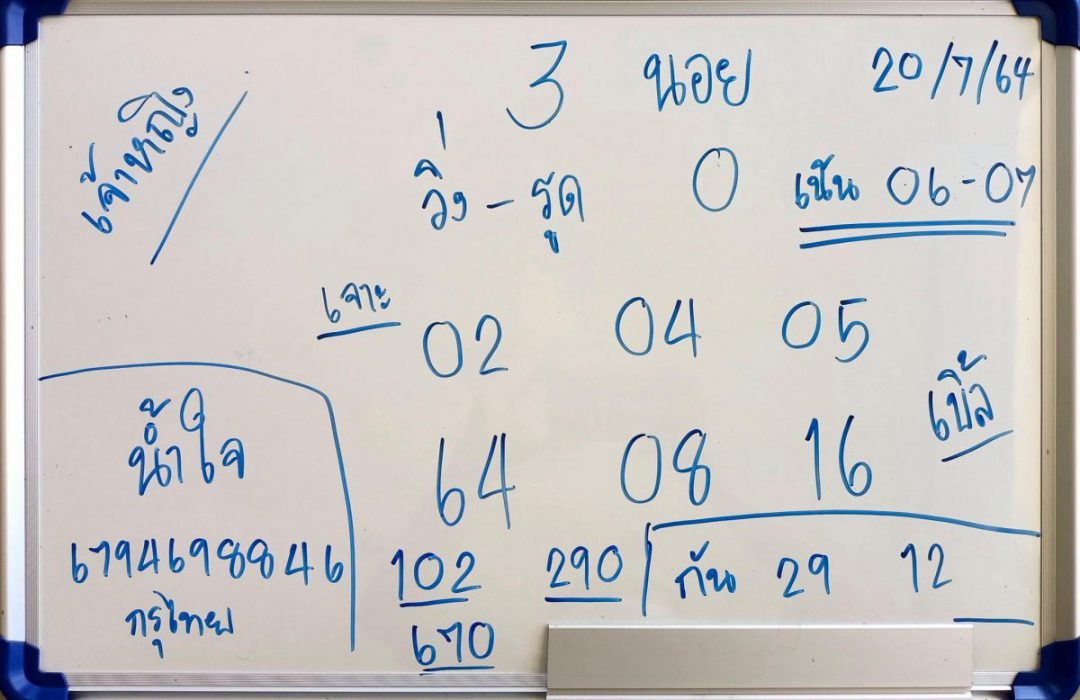 เจ้าหญิง
3 นอย 20/7/64
วิ่ง - รูด 0 เน้น 06-07
เจาะ 02 04 05
เบิ้ล
64 08 16
น้ำใจ
6794698846
กรุไทย
102 290
670
กัน 29 12